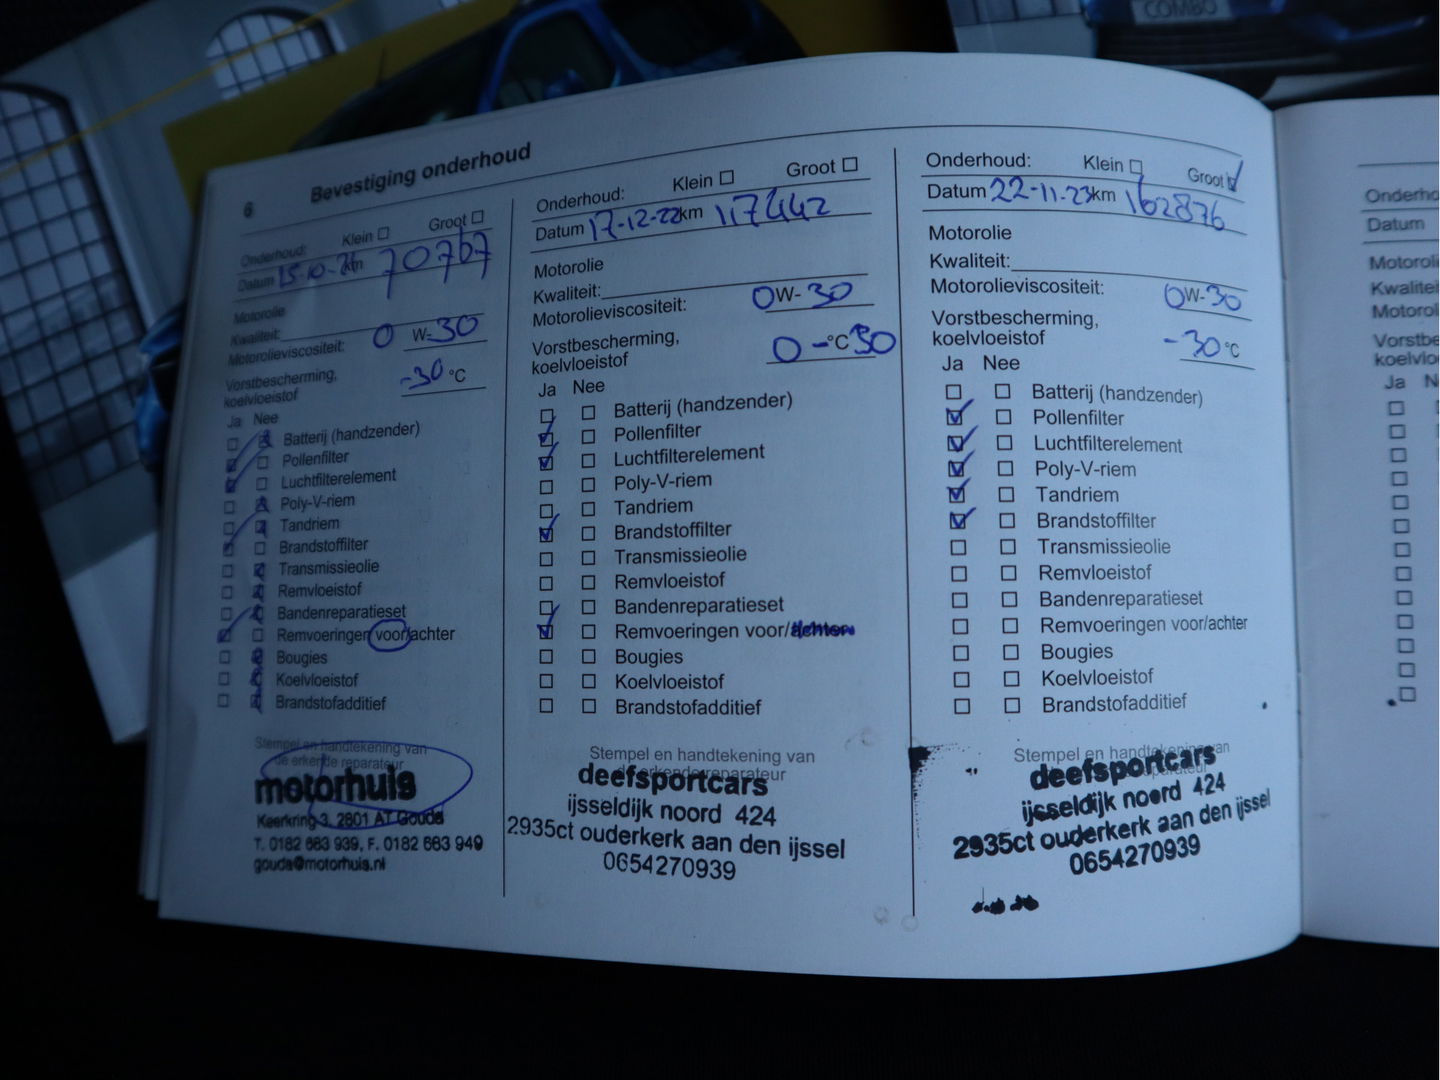 COMBO
6 Bevestiging onderhoud
Onderhoud: Klein Groot
Datum 15-10- km 70767
Motorolie
Kwaliteit:
Motorolieviscositeit: 0 W-30
Vorstbescherming,
koelvloeistof -30 °C
Ja Nee
Batterij (handzender)
Pollenfilter
Luchtfilterelement
Poly-V-riem
Tandriem
Brandstoffilter
Transmissieolie
Remvloeistof
Bandenreparatieset
Remvoeringen voor/achter
Bougies
Koelvloeistof
Brandstofadditief
Stempel en handtekening van
de erkende reparateur
motorhuis
Keerkring 3, 2801 AT Gouda
T. 0182 683 939, F. 0182 683 949
gouda@motorhuis.nl
Onderhoud: Klein Groot
Datum 17-12-22 km 117442
Motorolie
Kwaliteit:
Motorolieviscositeit: 0W-30
Vorstbescherming,
koelvloeistof 0 -°C 30
Ja Nee
Batterij (handzender)
Pollenfilter
Luchtfilterelement
Poly-V-riem
Tandriem
Brandstoffilter
Transmissieolie
Remvloeistof
Bandenreparatieset
Remvoeringen voor/achter
Bougies
Koelvloeistof
Brandstofadditief
Stempel en handtekening van
de erkende reparateur
deefsportcars
ijsseldijk noord 424
2935ct ouderkerk aan den ijssel
0654270939
Onderhoud: Klein Groot
Datum 22-11-23 km 162876
Motorolie
Kwaliteit:
Motorolieviscositeit: 0W-30
Vorstbescherming,
koelvloeistof -30 °C
Ja Nee
Batterij (handzender)
Pollenfilter
Luchtfilterelement
Poly-V-riem
Tandriem
Brandstoffilter
Transmissieolie
Remvloeistof
Bandenreparatieset
Remvoeringen voor/achter
Bougies
Koelvloeistof
Brandstofadditief
Stempel en handtekening van
reparateur
deefsportcars
ijsseldijk noord 424
2935ct ouderkerk aan den ijssel
0654270939
Datum
Ja